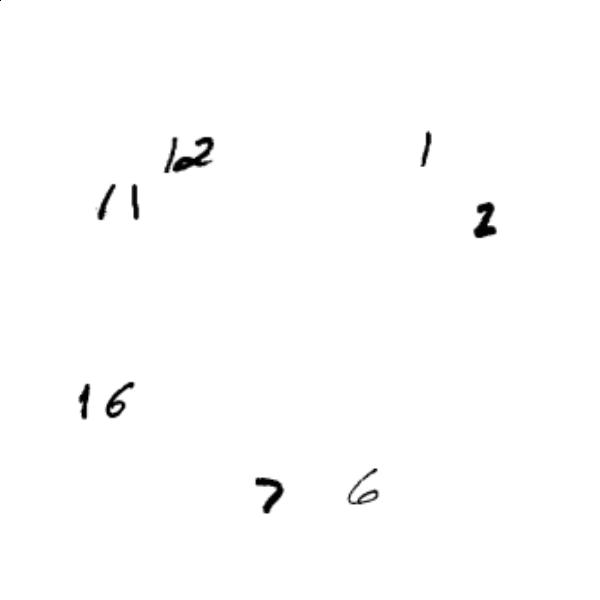 12 1
11 2
16
7 6